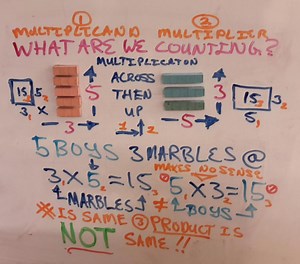 ① ②
MULTIPLICAND MULTIPLIER
WHAT ARE WE COUNTING?
MULTIPLICATON
ACROSS
THEN
UP
15 5
3 X
5
3
1 2
3
5
15 3
5
5 BOYS 3 MARBLES @
MAKES NO SENSE
3 X 5 = 15 5 X 3 = 15
MARBLES ≠ BOYS
IS SAME PRODUCT IS
NOT SAME!!